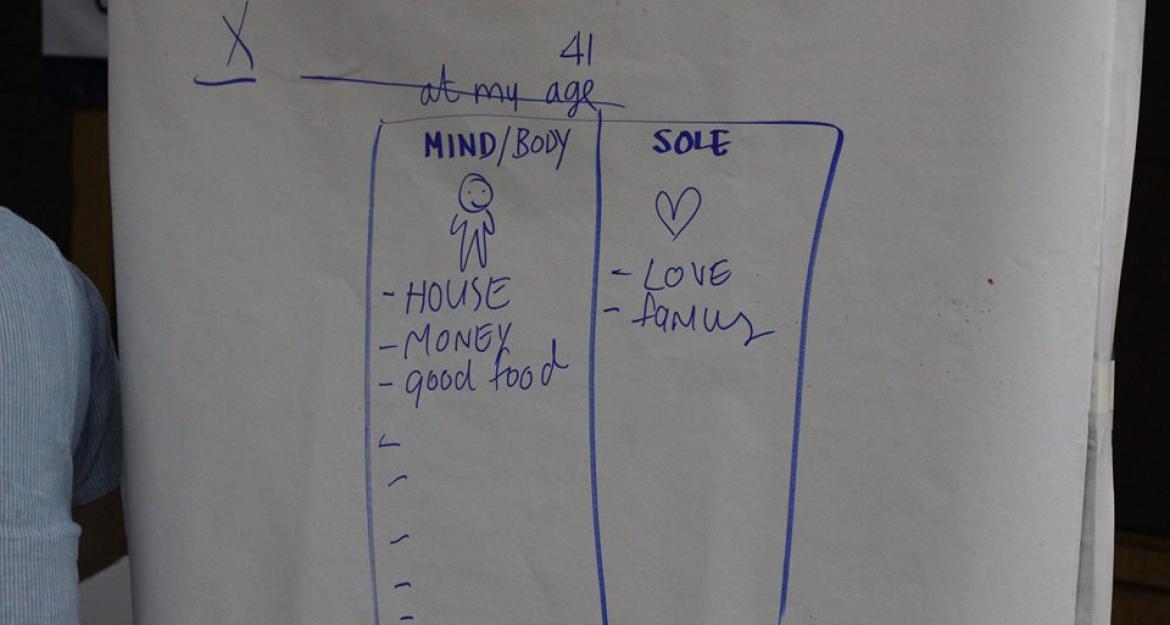 X
41
at my age
MIND/BODY
SOLE
- HOUSE
- MONEY
- good food
- LOVE
- family